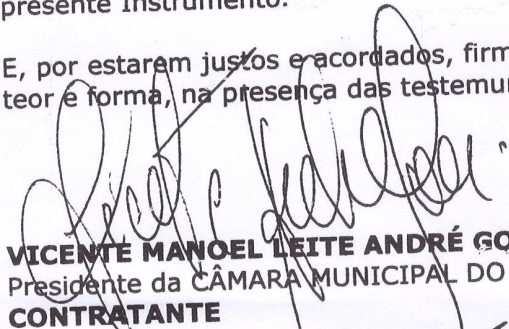 presente Instrumento.
E, por estarem justos e acordados, firm
teor e forma, na presença das testemu
VICENTE MANOEL LEITE ANDRÉ GO
Presidente da CÂMARA MUNICIPAL DO
CONTRATANTE